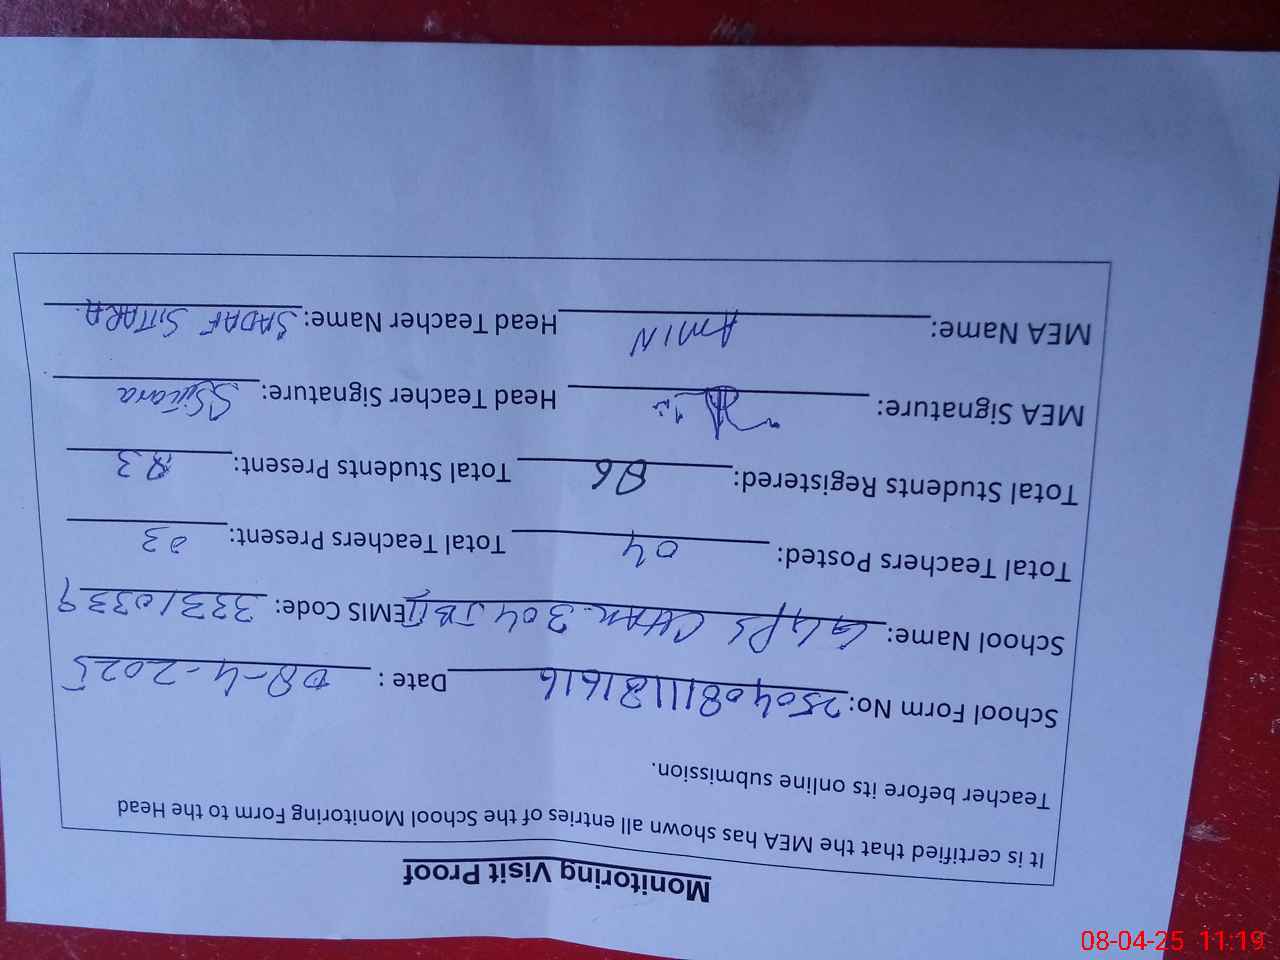 Monitoring Visit Proof
It is certified that the MEA has shown all entries of the School Monitoring Form to the Head
Teacher before its online submission.
School Form No: 25040811181616 Date : 08-4-2025
School Name: GGPS CHAK 304 JB II EMIS Code: 33310339
Total Teachers Posted: 04 Total Teachers Present: 03
Total Students Registered: 86 Total Students Present: 83
MEA Signature: Head Teacher Signature: SSitara
MEA Name: AMIN Head Teacher Name: SADAF SITTARA
08-04-25 11:19